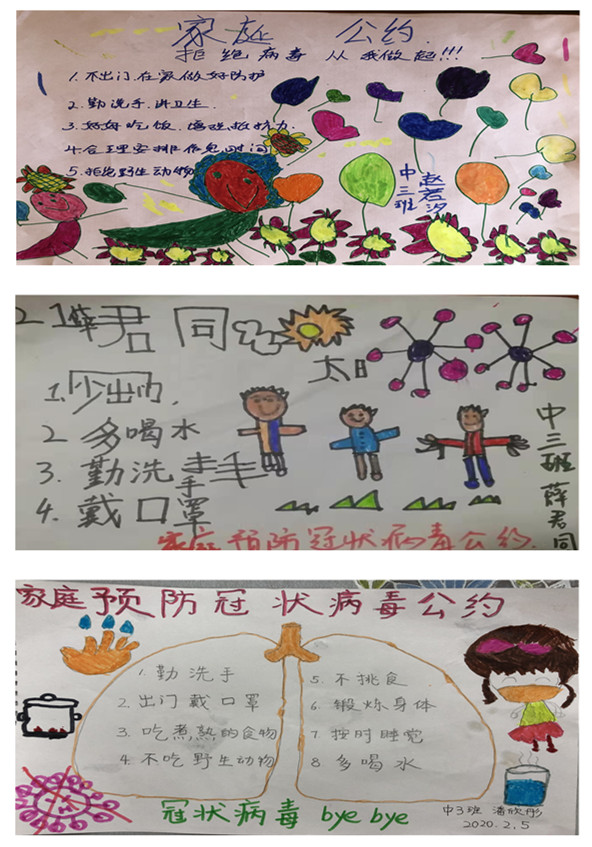 家庭 公约
拒绝病毒 从我做起!!!
1. 不出门, 在家做好防护
2. 勤洗手, 讲卫生.
3. 好好吃饭, 增强抵抗力
4. 合理安排作息时间
5. 拒绝野生动物
中三班
赵若汐
薛君同
太日
1. 少出门,
2 多喝水
3. 勤洗手
4. 戴口罩
中三班 薛君同
家庭预防冠状病毒公约.
家庭预防冠状病毒公约
1. 勤洗手
2. 出门戴口罩
3. 吃煮熟的食物
4. 不吃野生动物
5. 不挑食
6. 锻炼身体
7 按时睡觉
8 多喝水
冠状病毒 bye bye
中3班 潘欣彤
2020.2.5